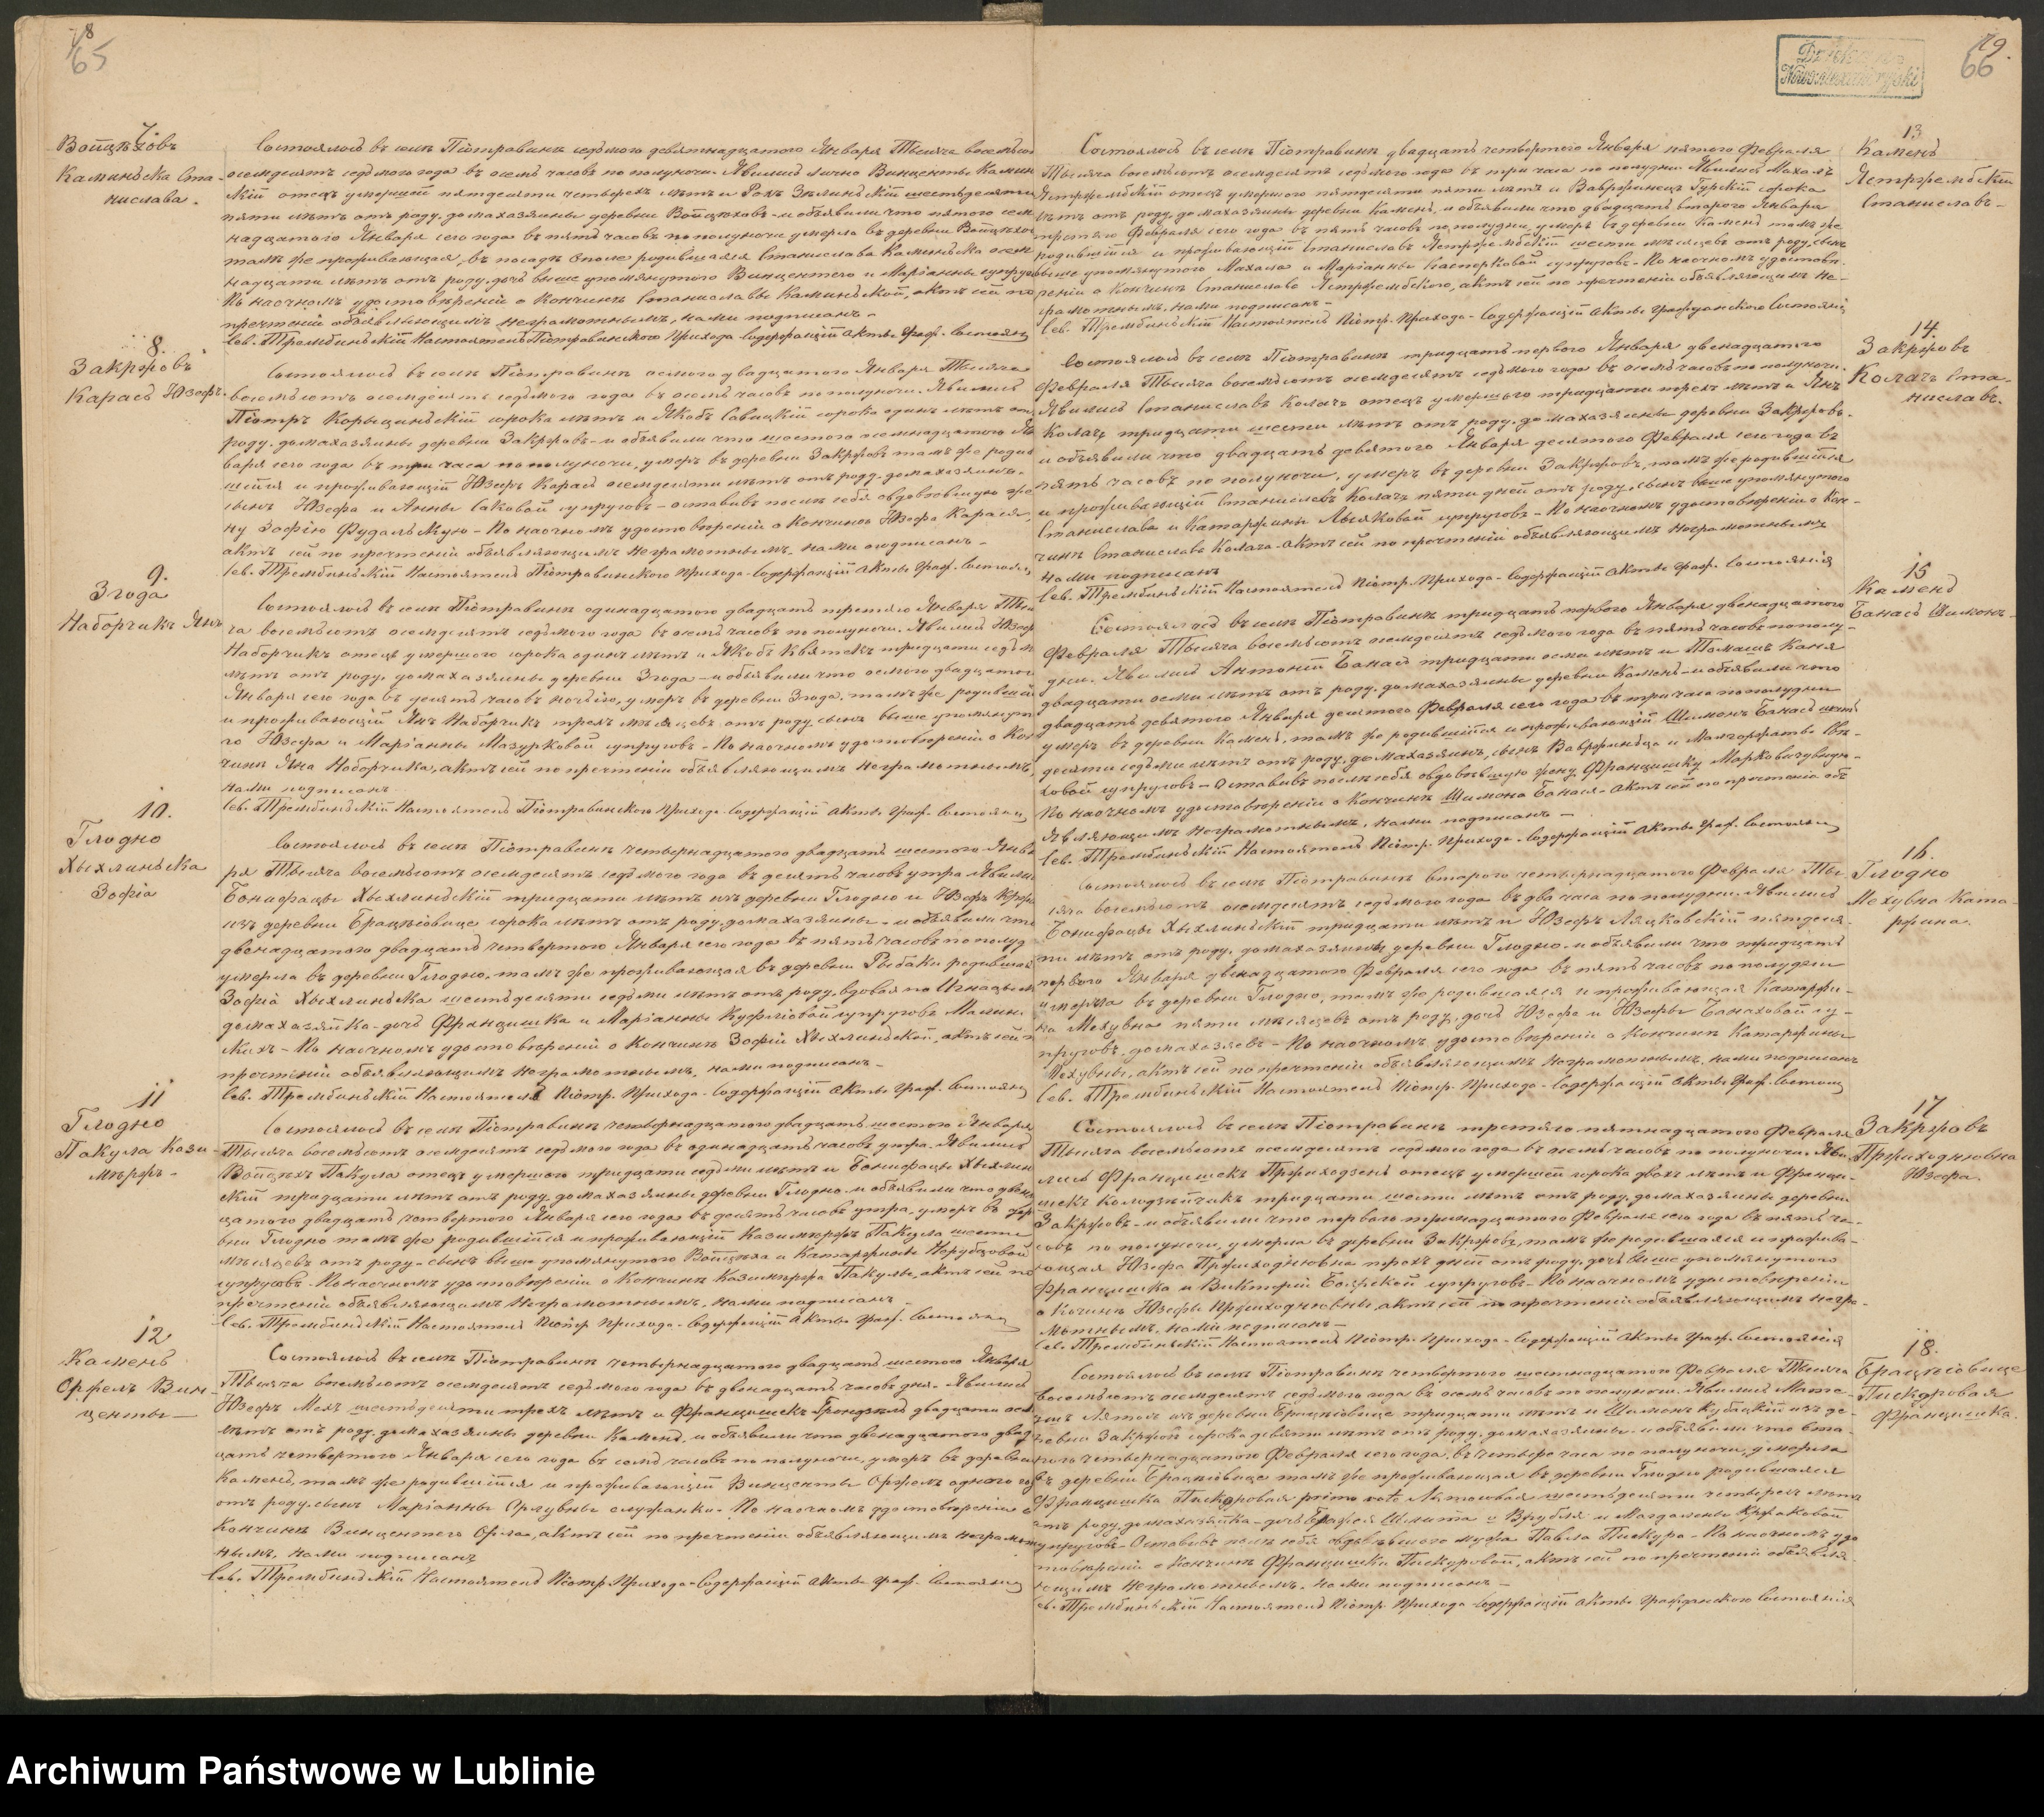 78
65
7.
Войцѣховъ
Каминьска Ста-
нислава.
Состоялось въ селѣ Піотравинѣ седьмого девятнадцатого Января Тысяча восемьсот
осемдесятъ седьмого года въ осемь часовъ по полуночи. Явились лично Винценты Камин
скій отецъ умершей пятдесяти четырехъ лѣтъ и Рохъ Зѣлинскій шестьдесяти
пяти лѣтъ отъ роду, домахозяины деревни Войцѣховъ - и объявили что пятого сем
надцатого Января сего года въ пять часовъ по полуночи умерла въ деревни Войцѣхов
тамъ же проживающая, въ посадѣ Ополе родившаяся Станислава Каминьска осем
надцати лѣтъ отъ роду, дочь выше упомянутого Винцентего и Маріанны супругов
По наочномъ удостовѣреніи о кончинѣ Станиславы Каминьской, актъ сей по
прочтеніи объявляющимъ неграмотнымъ, нами подписанъ -
Кс. Трембиньскій Настоятель Піотравинского Прихода - Содержащій Акты Граж. Состоянія
8.
Закржовъ
Карась Юзефъ.
Состоялось въ селѣ Піотравинѣ осмого двадцатого Января Тысяча
восемьсотъ осемдесятъ седьмого года въ осемь часовъ по полуночи. Явились
Піотръ Корыциньскій сорока лѣтъ и Якобъ Савицкій сорока одинъ лѣтъ отъ
роду, домахозяины деревни Закржовъ - и объявили что шостого осемнадцатого Ян
варя сего года въ три часа по полуночи, умеръ въ деревни Закржовъ тамъ же родив
шійся и проживающій Юзефъ Карась осемдесяти лѣтъ отъ роду, домахозяинъ,
сынъ Юзефа и Анны Саковой супруговъ - оставивъ послѣ себя овдовѣвшую же
ну Зофію Фудальскую - По наочномъ удостовѣреніи о кончинѣ Юзефа Карася,
актъ сей по прочтеніи объявляющимъ неграмотнымъ, нами подписанъ -
Кс. Трембиньскій Настоятель Піотравинского Прихода - Содержащій Акты Граж. Состоянія
9.
Згода
Наборчикъ Янъ
Состоялось въ селѣ Піотравинѣ одинадцатого двадцать третяго Января Тыся
ча восемьсотъ осемдесятъ седьмого года въ осемь часовъ по полуночи. Явились Юзеф
Наборчикъ отецъ умершого сорока одинъ лѣтъ и Якобъ Квятекъ тридцати седьм
лѣтъ отъ роду, домахозяины деревни Згода - и объявили что осмого двадцатого
Января сего года въ десять часовъ ночью, умеръ въ деревни Згода, тамъ же родившій
и проживающій Янъ Наборчикъ трехъ мѣсяцевъ отъ роду, сынъ выше упомянут
го Юзефа и Маріанны Мазурковой супруговъ - По наочномъ удостовѣреніи о кон
чинѣ Яна Наборчика, актъ сей по прочтеніи объявляющимъ неграмотнымъ,
нами подписанъ
Кс. Трембиньскій Настоятель Піотравинского Прихода - Содержащій Акты Граж. Состоянія
10.
Глодно
Хыхлиньска
Зофіа
Состоялось въ селѣ Піотравинѣ четырнадцатого двадцать шестого Янва
ря Тысяча восемьсотъ осемдесятъ седьмого года въ десять часовъ утра. Явились
Бонифацы Хыхлиньскій тридцати лѣтъ изъ деревни Глодно и Юзефъ
изъ деревни Брацѣовице сорока лѣтъ отъ роду, домахозяины - и объявили что
двенадцатого двадцать четвертого Января сего года въ пять часовъ по полуд
умерла въ деревни Глодно, тамъ же проживающая въ деревни Рыбаки родившая
Зофіа Хыхлиньска шестьдесяти седьми лѣтъ отъ роду, вдовая по Игнацым
домахозяйка - дочь Францишка и Маріанны супруговъ
По наочномъ удостовѣреніи о кончинѣ Зофіи Хыхлиньской, актъ сей п
прочтеніи объявляющимъ неграмотнымъ, нами подписанъ -
Кс. Трембиньскій Настоятель Піотр. Прихода - Содержащій Акты Граж. Состоянія
11
Глодно
Пакула Кази-
мѣржъ -
Состоялось въ селѣ Піотравинѣ четырнадцатого двадцать шестого Января
Тысяча восемьсотъ осемдесятъ седьмого года въ одинадцать часовъ утра. Явились
Войцѣхъ Пакула отецъ умершого тридцати седьми лѣтъ и Бонифацы Хыхлин
скій тридцати лѣтъ отъ роду, домахозяины деревни Глодно и объявили что двена
цатого двадцать четвертого Января сего года въ десять часовъ утра, умеръ въ дер
вни Глодно тамъ же родившійся и проживающій Казимѣржъ Пакула шести
мѣсяцевъ отъ роду - сынъ выше упомянутого Войцѣха и Катаржины
супруговъ. По наочномъ удостовѣреніи о кончинѣ Казимѣржа Пакулы, актъ сей по
прочтеніи объявляющимъ неграмотнымъ, нами подписанъ -
Кс. Трембиньскій Настоятель Піотр. Прихода - Содержащій Акты Граж. Состоянія
12
Камень
Оржелъ Вин-
центы -
Состоялось въ селѣ Піотравинѣ четырнадцатого двадцать шестого Января
Тысяча восемьсотъ осемдесятъ седьмого года въ двенадцать часовъ дня. Явились
Юзефъ Мехъ шестьдесяти трехъ лѣтъ и Францишекъ двадцати осм
лѣтъ отъ роду, домахозяины деревни Камень, и объявили что двенадцатого двад
цать четвертого Января сего года въ семь часовъ по полуночи, умеръ въ деревни
Камень, тамъ же родившійся и проживающій Винценты Оржелъ одного года
отъ роду, сынъ Маріанны Орлувны служанки - По наочномъ удостовѣреніи о
кончинѣ Винцентего Орла, актъ сей по прочтеніи объявляющимъ неграмот
нымъ, нами подписанъ
Кс. Трембиньскій Настоятель Піотр. Прихода - Содержащій Акты Граж. Состоянія
79.
66
13
Камень
Ястржембскій
Станиславъ -
Состоялось въ селѣ Піотравинѣ двадцать четвертого Января пятого Февраля
Тысяча восемьсотъ осемдесятъ седьмого года въ три часа по полудни. Явились Михалъ
Ястржембскій отецъ умершого пятдесяти пяти лѣтъ и Вавржинецъ Гурскій сорока
лѣтъ отъ роду, домахозяины деревни Камень, и объявили что двадцать второго Января
третяго Февраля сего года въ пять часовъ по полудни, умеръ въ деревни Камень тамъ же
родившійся и проживающій Станиславъ Ястржембскій шести мѣсяцевъ отъ роду, сынъ
выше упомянутого Михала и Маріанны Каспорковой супруговъ - По наочномъ удостовѣ-
реніи о кончинѣ Станислава Ястржембского, актъ сей по прочтеніи объявляющимъ не-
грамотнымъ, нами подписанъ -
Кс. Трембиньскій Настоятель Піотр. Прихода - Содержащій Акты Гражданского Состоянія
14.
Закржовъ
Колачъ Ста-
ниславъ.
Состоялось въ селѣ Піотравинѣ тридцать первого Января двенадцатого
Февраля Тысяча восемьсотъ осемдесятъ седьмого года въ осемь часовъ по полуночи.
Явились Станиславъ Колачъ отецъ умершого тридцати трехъ лѣтъ и Янъ
Колачъ тридцати шести лѣтъ отъ роду, домахозяины деревни Закржовъ.
и объявили что двадцать девятого Января десятого Февраля сего года въ
пять часовъ по полуночи, умеръ въ деревни Закржовъ, тамъ же родившійся
и проживающій Станиславъ Колачъ пяти дней отъ роду, сынъ выше упомянутого
Станислава и Катаржины Лысяковой супруговъ - По наочномъ удостовѣреніи о кон-
чинѣ Станислава Колача - актъ сей по прочтеніи объявляющимъ неграмотнымъ
нами подписанъ
Кс. Трембиньскій Настоятель Піотр. Прихода - Содержащій Акты Граж. Состоянія
15
Камень
Банась Шимонъ -
Состоялось въ селѣ Піотравинѣ тридцать первого Января двенадцатого
Февраля Тысяча восемьсотъ осемдесятъ седьмого года въ пять часовъ по полу-
дни. Явились Антоній Банась тридцати осми лѣтъ и Томашъ Каня
двадцати осми лѣтъ отъ роду, домахозяины деревни Камень - и объявили что
двадцать девятого Января десятого Февраля сего года въ три часа по полудни
умеръ въ деревни Камень, тамъ же родившійся и проживающій Шимонъ Банась шесть
десяти седьми лѣтъ отъ роду, домахозяинъ, сынъ Вавржинца и Малгоржаты
ковой супруговъ - Оставивъ послѣ себя овдовѣвшую жену Францишку
По наочномъ удостовѣреніи о кончинѣ Шимона Банася - актъ сей по прочтеніи объ
являющимъ неграмотнымъ, нами подписанъ -
Кс. Трембиньскій Настоятель Піотр. Прихода - Содержащій Акты Граж. Состоянія
16.
Глодно
Мехувна Ката-
ржина.
Состоялось въ селѣ Піотравинѣ второго четырнадцатого Февраля Ты-
сяча восемьсотъ осемдесятъ седьмого года въ два часа по полудни. Явились
Бонифацы Хыхлиньскій тридцати лѣтъ и Юзефъ Ляцковскій пятдеся-
ти лѣтъ отъ роду, домахозяины деревни Глодно - и объявили что тридцать
первого Января двенадцатого Февраля сего года въ пять часовъ по полудни
умерла въ деревни Глодно, тамъ же родившаяся и проживающая Катаржи-
на Мехувна пяти мѣсяцевъ отъ роду, дочь Юзефа и Юзефы Банаховой су-
пруговъ, домахозяевъ - По наочномъ удостовѣреніи о кончинѣ Катаржины
Мехувны, актъ сей по прочтеніи объявляющимъ неграмотнымъ, нами подписанъ
Кс. Трембиньскій Настоятель Піотр. Прихода - Содержащій Акты Граж. Состоянія
17
Закржовъ
Пржиходнювна
Юзефа.
Состоялось въ селѣ Піотравинѣ третяго пятнадцатого Февраля
Тысяча восемьсотъ осемдесятъ седьмого года въ осемь часовъ по полуночи. Яви-
лись Францишекъ Пржиходзень отецъ умершей сорока двохъ лѣтъ и Франци-
шекъ Колодзейчикъ тридцати шести лѣтъ отъ роду, домахозяины деревни
Закржовъ - и объявили что первого тринадцатого Февраля сего года въ пять ча-
совъ по полуночи, умерла въ деревни Закржовъ, тамъ же родившаяся и прожива-
ющая Юзефа Пржиходнювна трехъ дней отъ роду, дочь выше упомянутого
Францишка и Викторіи супруговъ - По наочномъ удостовѣреніи
о кончинѣ Юзефы Пржиходнювны, актъ сей по прочтеніи объявляющимъ негра-
мотнымъ, нами подписанъ -
Кс. Трембиньскій Настоятель Піотр. Прихода - Содержащій Акты Граж. Состоянія
18.
Брацѣовице
Пискоровая
Францишка.
Состоялось въ селѣ Піотравинѣ четвертого шестнадцатого Февраля Тысяча
восемьсотъ осемдесятъ седьмого года въ осемь часовъ по полуночи. Явились Мате-
ушъ изъ деревни Брацѣовице тридцати лѣтъ и Шимонъ Кубацкій изъ де-
ревни Закржовъ сорока девяти лѣтъ отъ роду, домахозяины - и объявили что вто-
рого четырнадцатого Февраля сего года, въ четыре часа по полуночи, умерла
въ деревни Брацѣовице тамъ же проживающая въ деревни Глодно родившаяся
Францишка Пискоровая primo voto шестьдесяти четырехъ лѣтъ
отъ роду, домахозяйка - дочь и Магдалены
супруговъ - Оставивъ послѣ себя овдовѣвшого мужа Павла Пискора - По наочномъ удо
стовѣреніи о кончинѣ Францишки Пискоровой, актъ сей по прочтеніи объявля-
ющимъ неграмотнымъ, нами подписанъ -
Кс. Трембиньскій Настоятель Піотр. Прихода - Содержащій Акты Гражданского Состоянія
Archiwum Państwowe w Lublinie